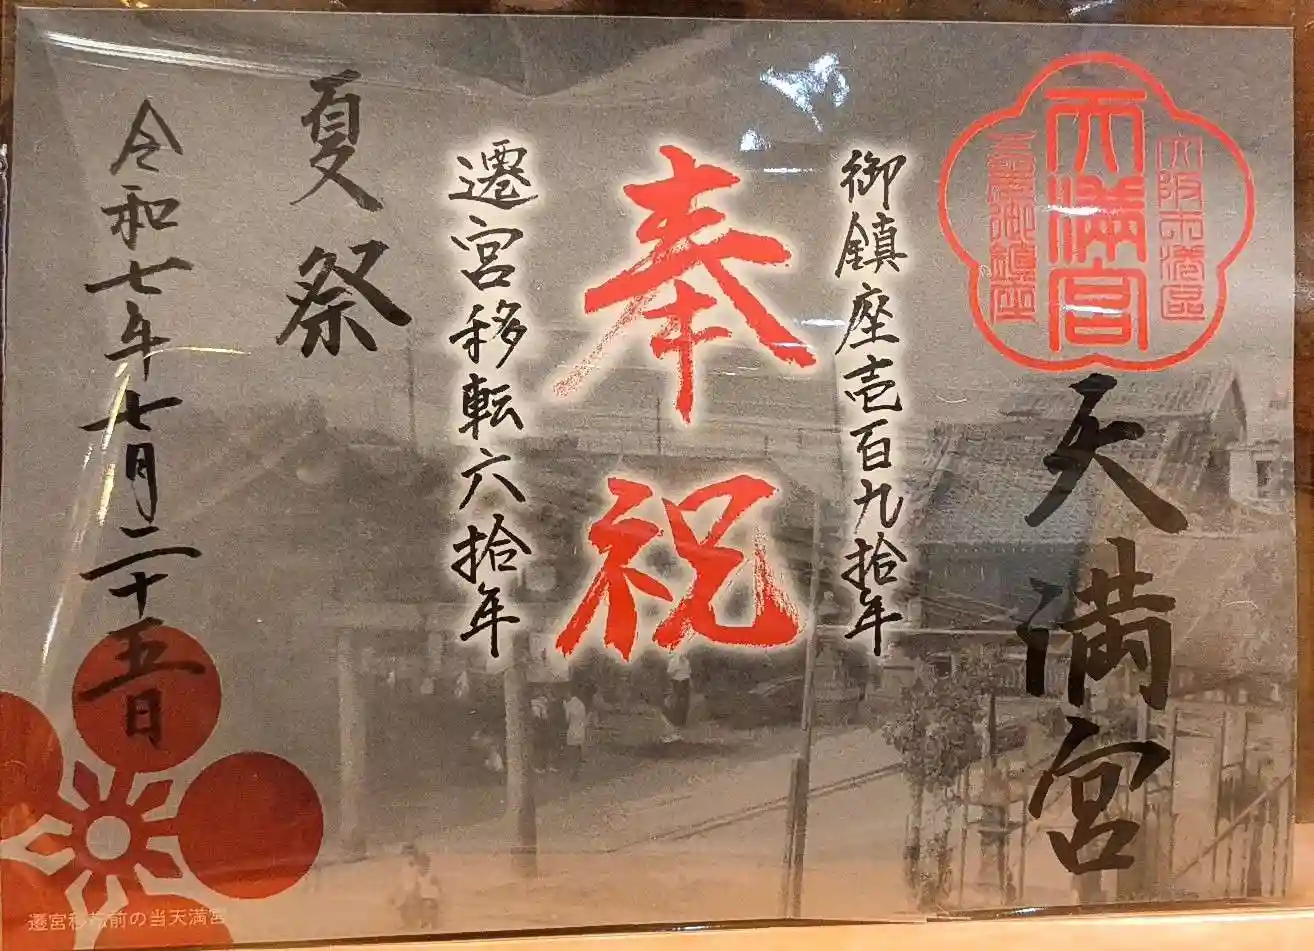 大阪市港区
天満宮
三社御鎮座
天満宮
御鎮座壱百九拾年
奉祝
遷宮移転六拾年
夏祭
令和七年七月二十五日
遷宮移転前の当天満宮